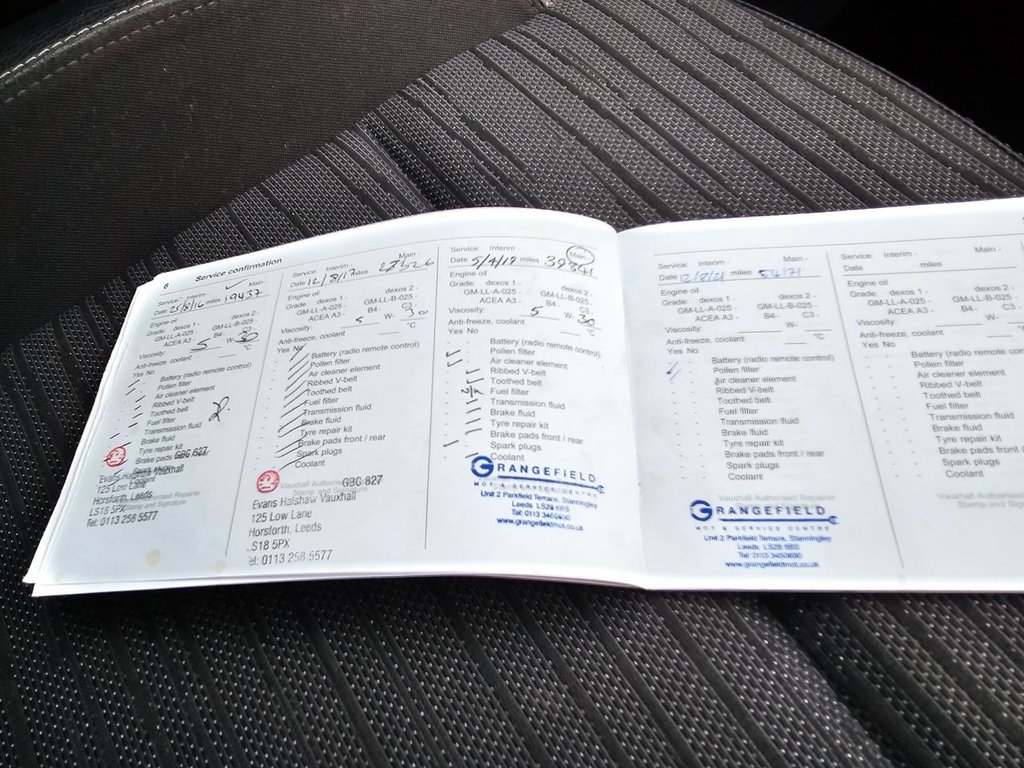 6 Service confirmation
Service: Interim - Main -
Date 25/5/16 miles 19437
Engine oil
Grade: dexos 1 - dexos 2 -
GM-LL-A-025 - GM-LL-B-025 -
ACEA A3 - B4 -
Viscosity: 5 W- 30
Anti-freeze, coolant °C
Yes No
Battery (radio remote control)
Pollen filter
Air cleaner element
Ribbed V-belt
Toothed belt
Fuel filter
Transmission fluid
Brake fluid
Tyre repair kit
Brake pads
GBC 827
Evans Halshaw Vauxhall
125 Low Lane
Horsforth, Leeds
LS18 5PX
Tel: 0113 258 5577
Service: Interim - Main -
Date 12/8/17 miles
Engine oil
Grade: dexos 1 - dexos 2 -
GM-LL-A-025 - GM-LL-B-025 -
ACEA A3 - B4 - C3 -
Viscosity: 5 W- 30
Anti-freeze, coolant °C
Yes No
Battery (radio remote control)
Pollen filter
Air cleaner element
Ribbed V-belt
Toothed belt
Fuel filter
Transmission fluid
Brake fluid
Tyre repair kit
Brake pads front / rear
Spark plugs
Coolant
GBC 827
Vauxhall Authorised
Stamp and Signature
Evans Halshaw Vauxhall
125 Low Lane
Horsforth, Leeds
LS18 5PX
Tel: 0113 258 5577
Service: Interim - Main -
Date 5/4/19 miles 39841
Engine oil
Grade: dexos 1 - dexos 2 -
GM-LL-A-025 - GM-LL-B-025 -
ACEA A3 - B4 - C3 -
Viscosity: 5 W- 30
Anti-freeze, coolant °C
Yes No
Battery (radio remote control)
Pollen filter
Air cleaner element
Ribbed V-belt
Toothed belt
Fuel filter
Transmission fluid
Brake fluid
Tyre repair kit
Brake pads front / rear
Spark plugs
Coolant
GRANGEFIELD
MOT & SERVICE CENTRE
Unit 2 Parkfield Terrace, Stanningley
Leeds LS28 6BS
Tel: 0113
www.grangefieldmot.co.uk
Service: Interim - Main -
Date 12/8/21 miles
Engine oil
Grade: dexos 1 - dexos 2 -
GM-LL-A-025 - GM-LL-B-025 -
ACEA A3 - B4 - C3 -
Viscosity: W-
Anti-freeze, coolant °C
Yes No
Battery (radio remote control)
Pollen filter
Air cleaner element
Ribbed V-belt
Toothed belt
Fuel filter
Transmission fluid
Brake fluid
Tyre repair kit
Brake pads front / rear
Spark plugs
Coolant
Vauxhall Authorised Repairer
GRANGEFIELD
MOT & SERVICE CENTRE
Unit 2 Parkfield Terrace, Stanningley
Leeds LS28 6BS
Tel: 0113
www.grangefieldmot.co.uk
Service: Interim - Main -
Date miles
Engine oil
Grade: dexos 1 - dexos 2 -
GM-LL-A-025 - GM-LL-B-025 -
ACEA A3 - B4 - C3 -
Viscosity: W-
Anti-freeze, coolant
Yes No
Battery (radio remote control)
Pollen filter
Air cleaner element
Ribbed V-belt
Toothed belt
Fuel filter
Transmission fluid
Brake fluid
Tyre repair kit
Brake pads front / rear
Spark plugs
Coolant
Vauxhall Authorised
Stamp and